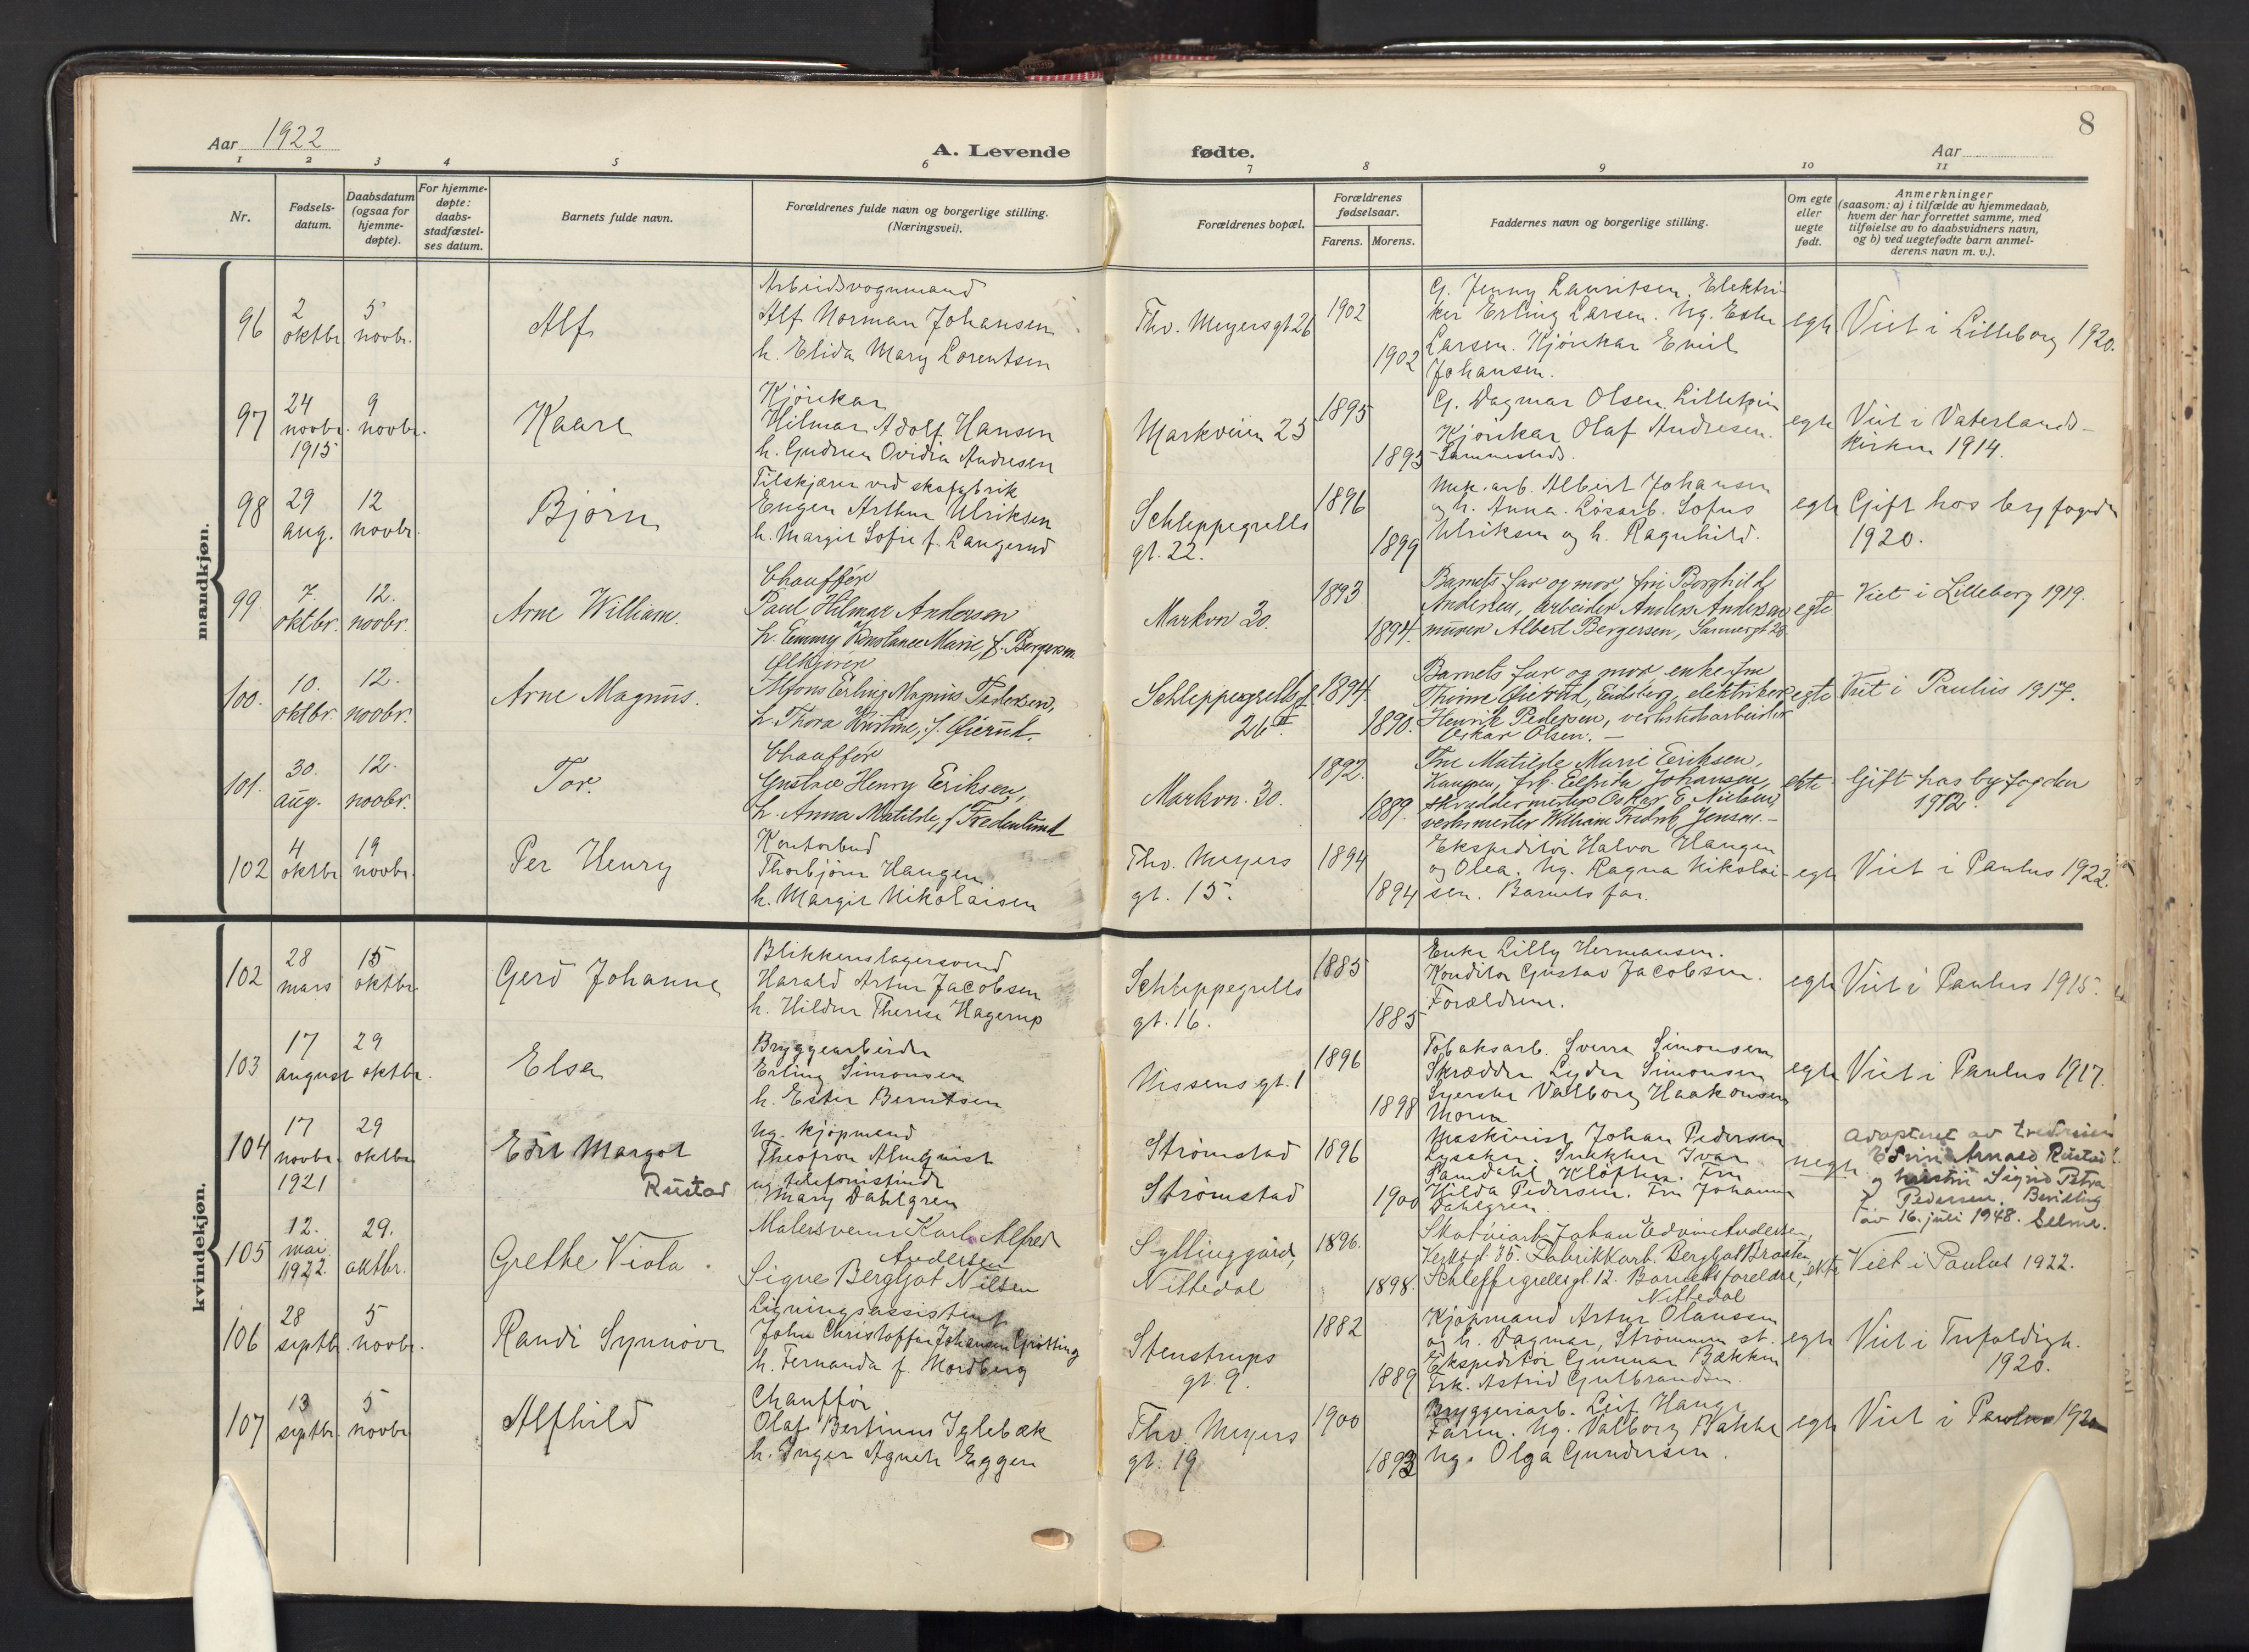 8
Aar 1922
A. Levende fødte.
Aar
1 2 3 4 5 6 7 8 9 10 11
Nr.
Fødsels-
datum.
Daabsdatum
(ogsaa for
hjemme-
døpte).
For hjemme-
døpte:
daabs-
stadfæstel-
ses datum.
Barnets fulde navn.
Forældrenes fulde navn og borgerlige stilling.
(Næringsvei).
Forældrenes bopæl.
Forældrenes
fødselsaar.
Farens. Morens.
Faddernes navn og borgerlige stilling.
Om egte
eller
uegte
født.
Anmerkninger
(saasom: a) i tilfælde av hjemmedaab,
hvem der har forrettet samme, med
tilføielse av to daabsvidners navn,
og b) ved uegtefødte barn anmel-
derens navn m. v.).
mandkjøn.
96
2
oktbr.
5
novbr.
Alf
Arbeidsvognmand
Alf Norman Johansen
h. Elida Mary Lorentsen
Thv. Meyersgt. 26
1902
1902
G. Jenny Lauritsen. Elektri-
ker Erling Larsen. Ug. Ester
Larsen. Kjørekar Emil
Johansen.
egte
Viet i Lilleborg 1920.
97
24
novbr.
1915
9
novbr.
Kaare
Kjørekar
Hilmar Adolf Hansen
h. Gudrun Ovidia Andresen
Markveien 23
1895
1895
G. Dagmar Olsen.
Kjørekar Olaf Andresen.
Sammesteds.
egte
Viet i Vaterlands-
kirken 1914.
98
29
aug.
12
novbr.
Bjørn
Tilskjærer ved skofabrik
Eugen Arthur Ulriksen
h. Margit Sofie f. Langerud
Schleppegrells
gt. 22.
1896
1899
Mek. arb. Albert Johansen
og h. Anna. Løsarb. Sofus
Ulriksen og h. Ragnhild.
egte
Gift hos byfogden
1920.
99.
7.
oktbr.
12.
novbr.
Arne William.
Chauffør
Paul Hilmar Andersen
h. Emmy Konstance Marie, f. Bergersen
Markvn 30.
1893
1894.
Barnets far og mor, fru Borghild
Andersen, arbeider Anders Andersen
murer Albert Bergersen, Sannergt 28
egte
Viet i Lilleborg 1919.
100.
10.
oktbr.
12.
novbr.
Arne Magnus.
Alfons Erling Magnus Pedersen,
h. Thora Kristine, f. Øierud.
Schleppegrellsgt
26 II.
1894.
1890.
Barnets far og mor, enkefru
Thrine Øierud, Eidsberg, elektriker
Henrik Pedersen, verkstedsarbeider
Oskar Olsen. —
egte
Viet i Paulus 1917.
101.
30.
aug.
12.
novbr.
Tor.
Chauffør
Gustav Henry Eriksen,
h. Anna Matilde, f. Fredenlund
Markvn. 30.
1892.
1889.
Fru Matilde Marie Eriksen,
frk. Elfrida Johansen,
skreddermester Oskar E. Nielsen,
verksmester William Fredrik Jensen. —
ekte
Gift hos byfogden
1912.
102
4
oktbr
19
novbr.
Per Henry
Kontorbud
Thorbjørn Haugen
h. Margit Nikolaisen
Thv. Meyers
gt. 15.
1894
1894
Ekspeditør Halvor Haugen
og Olea. Ug. Ragna Nikolai-
sen. Barnets far.
egte
Viet i Paulus 1922.
kvindekjøn.
102
28
mars
15
oktbr.
Gerd Johanne
Blikkenslagersvend
Harald Artur Jacobsen
h. Hildur Therese Hagerup
Schleppegrells
gt. 16.
1885
1885
Enke Lilly Hermansen.
Konditor Gustav Jacobsen.
Forældrene.
egte
Viet i Paulus 1915.
103
17
august
29
oktbr.
Elsa
Bryggearbeider
Erling Simonsen
h. Ester Berntsen
Nissens gt. 1
1896
1898
Tobaksarb. Sverre Simonsen
Skrædder Lyder Simonsen
Syerske Valborg Haakonsen
Moren
egte
Viet i Paulus 1917.
104
17
novbr.
1921
29
oktbr.
Edit Margot
Rustad
Ug. kjøpmand
Theofron Almquist
ug telefonistinde
Mary Dahlgren
Strømstad
Strømstad
1896
1900
Maskinist Johan Pedersen
Lysaker. Snekker Ivar
Sandahl Kløften. Fru
Hilda Pedersen. Fru Johanne
Dahlgren.
uegte
Adoptert av
Edvin Arnold Rustad
og hustru Sigrid Petra
Pedersen. Bevilling
av 16. juli 1948. Selmer.
105
12.
mai.
1922.
29.
oktbr.
Grethe Viola.
Malersvenn Karl Alfred
Andersen
Signe Bergljot Nilsen
Syllinggård,
Nittedal
1896.
1898.
Skotøiarb. Johan Edvin Andersen,
35. Fabrikkarb. Bergljot Braaten
Schleppegrellsgt. 12. Barnets foreldre,
Nittedal
ekte
Viet i Paulus 1922.
106
28
septbr.
5
novbr.
Randi Synnøve
Ligningsassistent
John Christoffer Johansen Grøtting
h. Fernanda f. Nordberg
Stenstrups
gt. 9.
1882
1889
Kjøpmand Artur Olaussen
og h. Dagmar, Strømmen st.
Ekspeditør Gunnar Bækken
Frk. Astrid Gulbrandsen.
egte
Viet i Trefoldigh.
1920.
107
13
septbr.
5
novbr
Alfhild
Chauffør
Olaf Bertinus Iglebæk
h. Inger Agnete Eggen
Thv. Meyers
gt. 19
1900
1893
Bryggeriarb. Leif Hauge
Faren. Ug. Valborg Bakke
Ug. Olga Gundersen.
egte
Viet i Paulus 1920